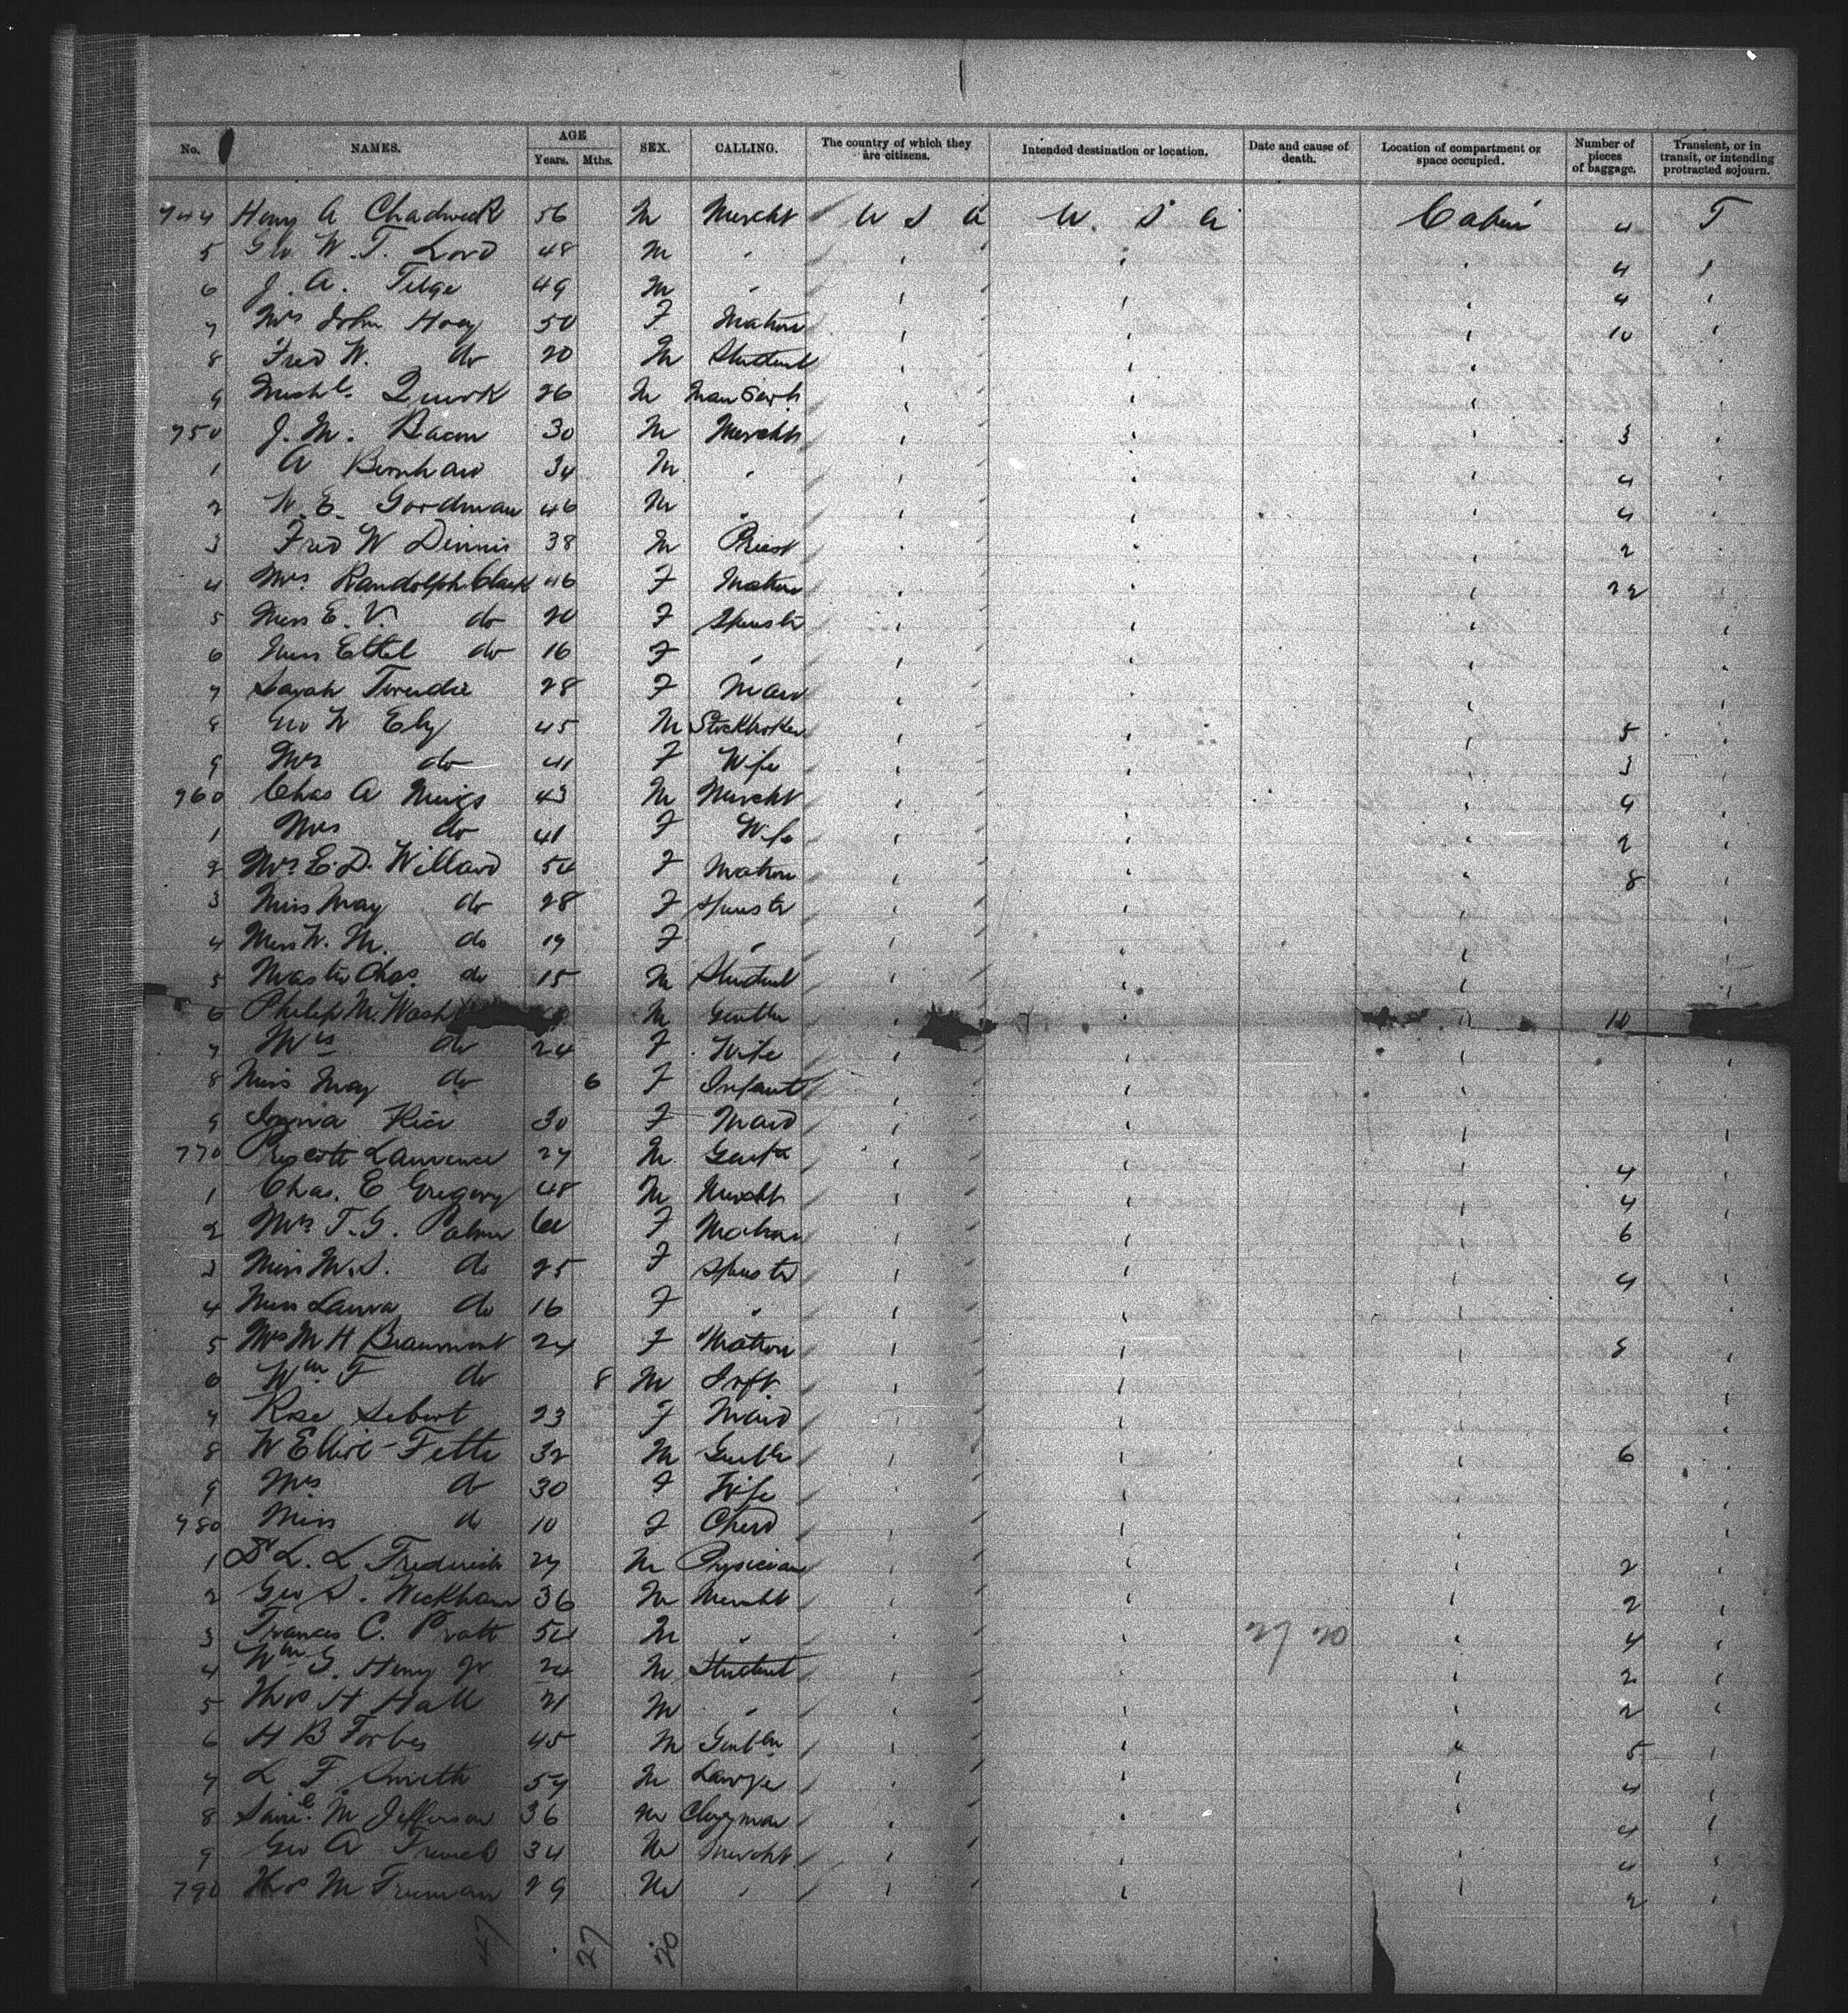 No. NAMES. AGE Years. Mths. SEX. CALLING. The country of which they are citizens. Intended destination or location. Date and cause of death. Location of compartment or space occupied. Number of pieces of baggage. Transient, or in transit, or intending protracted sojourn.
744 Henry A Chadwick 56 M Mercht U S A U. S A Cabin 4 T
5 Geo W. T. Lord 48 M " 4
6 J. A. 49 M " 4
7 Mrs John Hoey 50 F Matron 10
8 Fred W. do 20 M Student
9 Quirk 26 M Man Servt
750 J. M. Bacon 30 M Mercht 3
1 A Bernhard 34 M " 4
2 W. E. Goodman 46 M " 4
3 Fred W Dennis 38 M Priest 2
4 Mrs Randolph Clark 46 F Matron 22
5 Miss E. V. do 20 F Spinstr
6 Miss Ethel do 16 F "
7 Sarah Tweedie 28 F Maid
8 Geo W Ely 45 M Stockbroker 5
9 Mrs do 41 F Wife 3
760 Chas A Meigs 43 M Mercht 4
1 Mrs do 41 F Wife 2
2 Mrs E. D. Willard 54 F Matron 8
3 Miss May do 28 F Spinstr
4 Miss W. M. do 19 F "
5 Master Chas. do 15 M Student
6 Philip M. Wash M Gentln 10
7 Mrs do 24 F Wife
8 Miss May do 6 F Infant
9 Rice 30 F Maid
770 Prescott Lawrence 27 M Gentn 4
1 Chas. E Gregory 48 M Mercht 4
2 Mrs T. G. Palmer F Matron 6
3 Miss M. S. do 25 F Spinstr 4
4 Miss Laura do 16 F "
5 Mrs M H Beaumont 24 F Matron 5
6 Wm F do 8 M Inft
7 Rose Sebert 23 F Maid
8 W Elliot Fette 32 M Gentln 6
9 Mrs do 30 F Wife
780 Miss do 10 F Child
1 Dr L. L Frederick 27 M Physician 2
2 Geo S. Wickham 36 M Mercht 2
3 Frances C. Pratt 54 M " 27 20 4
4 Wm G. Henry Jr 24 M Student 2
5 Thos H Hall 21 M " 2
6 H B Forbes 45 M Gentln 5
7 L F Smith 57 M Lawyer 4
8 Saml M Jefferson 36 M Clergyman 4
9 Geo A French 34 M Mercht 4
790 Thos M Truman 29 M " 2
47 27 20